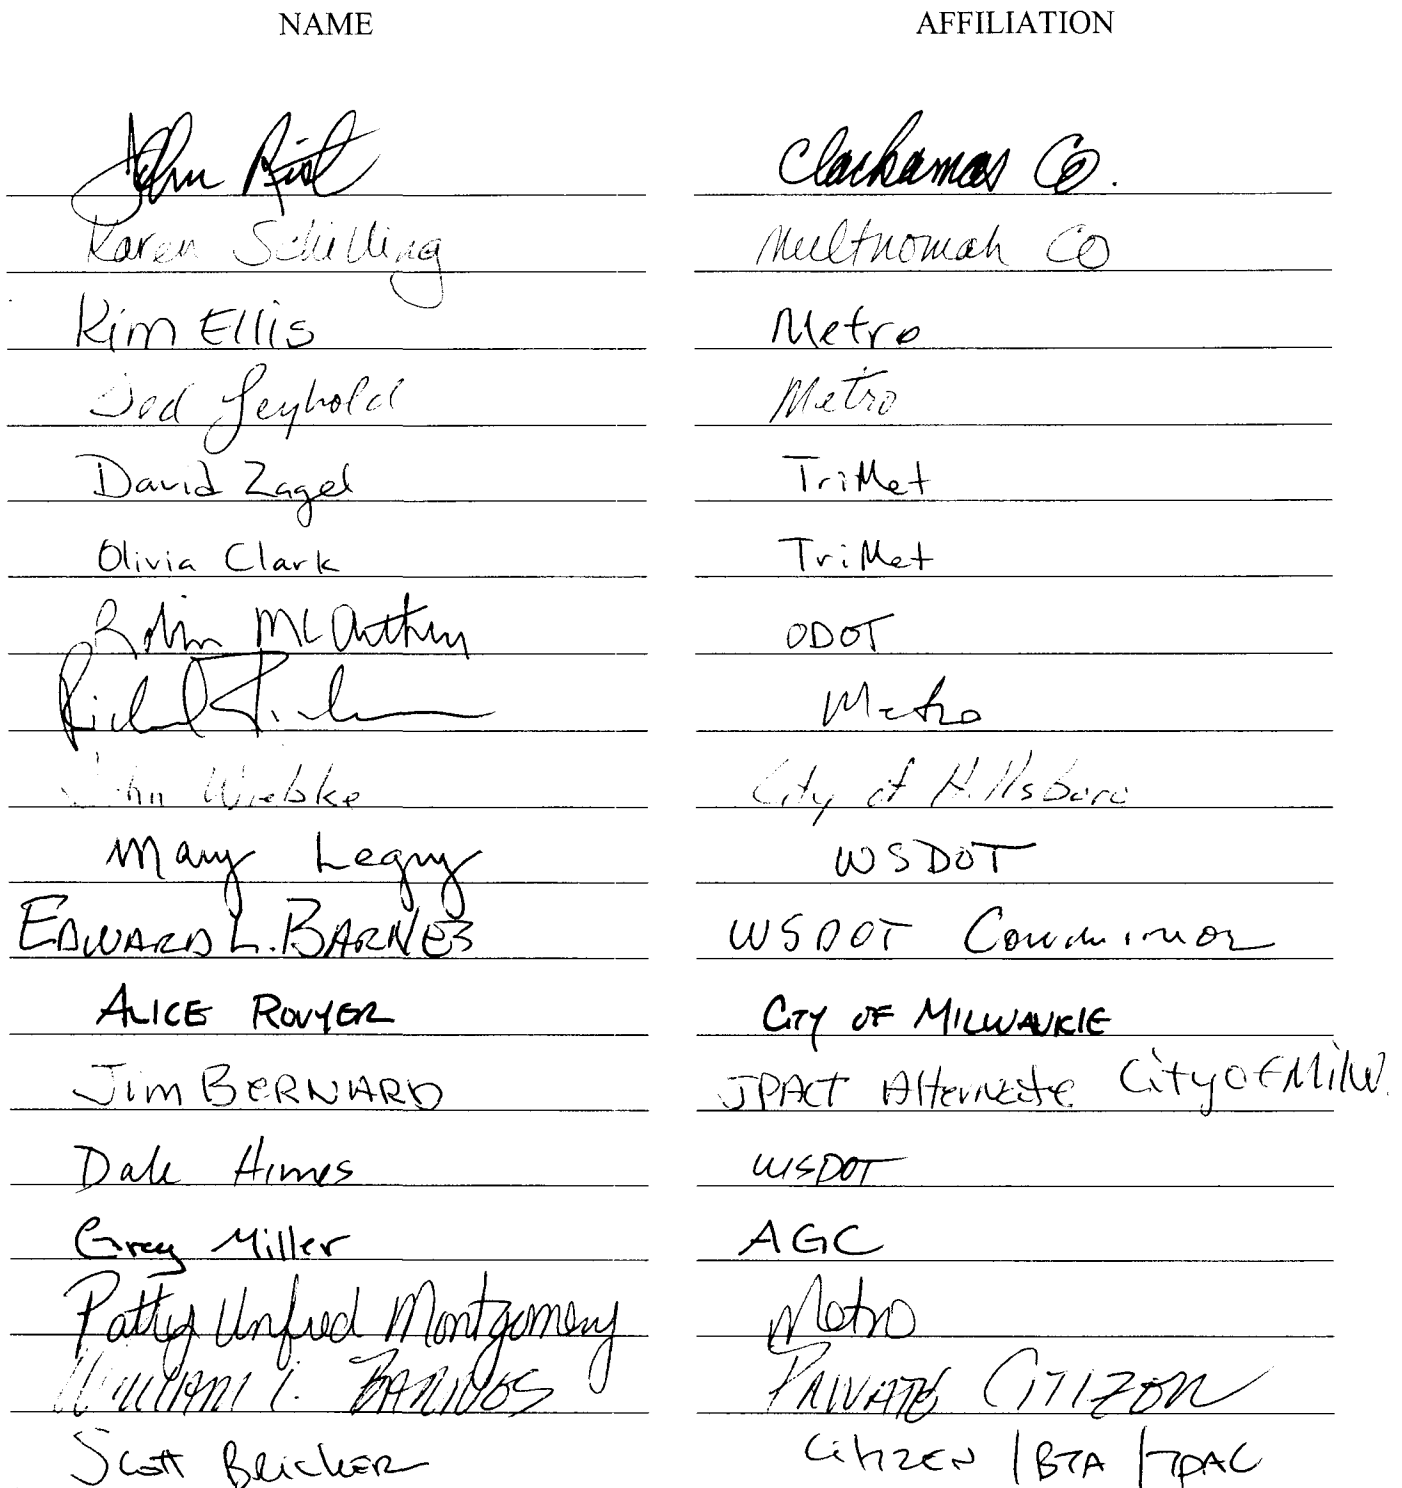 NAME AFFILIATION
John Rist Clackamas Co.
Karen Schilling Multnomah Co
Kim Ellis Metro
Ted Leybold Metro
David Zagel TriMet
Olivia Clark TriMet
Robin McArthur ODOT
Richard Metro
John Wiebke City of Hillsboro
Mary Legry WSDOT
EDWARD L. BARNES WSDOT
ALICE ROUYER CITY OF MILWAUKIE
Jim BERNARD JPACT Alternate City OF Milw.
Dale Himes WSDOT
Greg Miller AGC
Patty Unfred Montgomery Metro
WILLIAM BARNES PRIVATE CITIZEN
Scott BRICKER CitizEN / BTA / TPAC